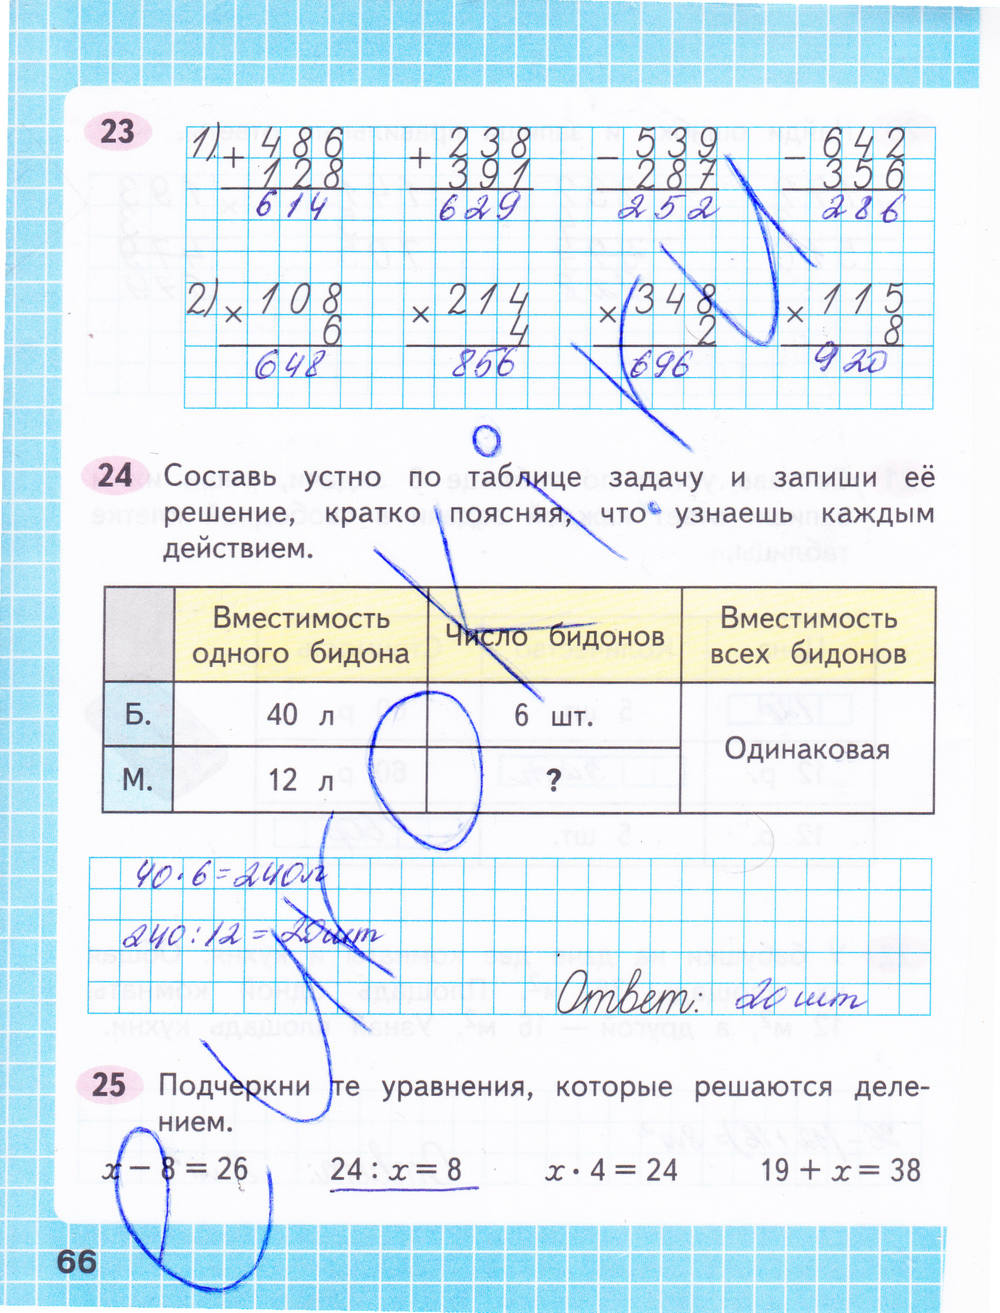 23
1) + 486 + 238 - 539 - 642
128 391 287 356
614 629 252 286
2) × 108 × 214 × 348 × 115
6 4 2 8
648 856 696 920
24 Составь устно по таблице задачу и запиши её
решение, кратко поясняя, что узнаешь каждым
действием.
Вместимость одного бидона Число бидонов Вместимость всех бидонов
Б. 40 л 6 шт. Одинаковая
М. 12 л ?
40·6=240л
240:12=20шт
Ответ: 20 шт
25 Подчеркни те уравнения, которые решаются деле-
нием.
x − 8 = 26 24 : x = 8 x · 4 = 24 19 + x = 38
66